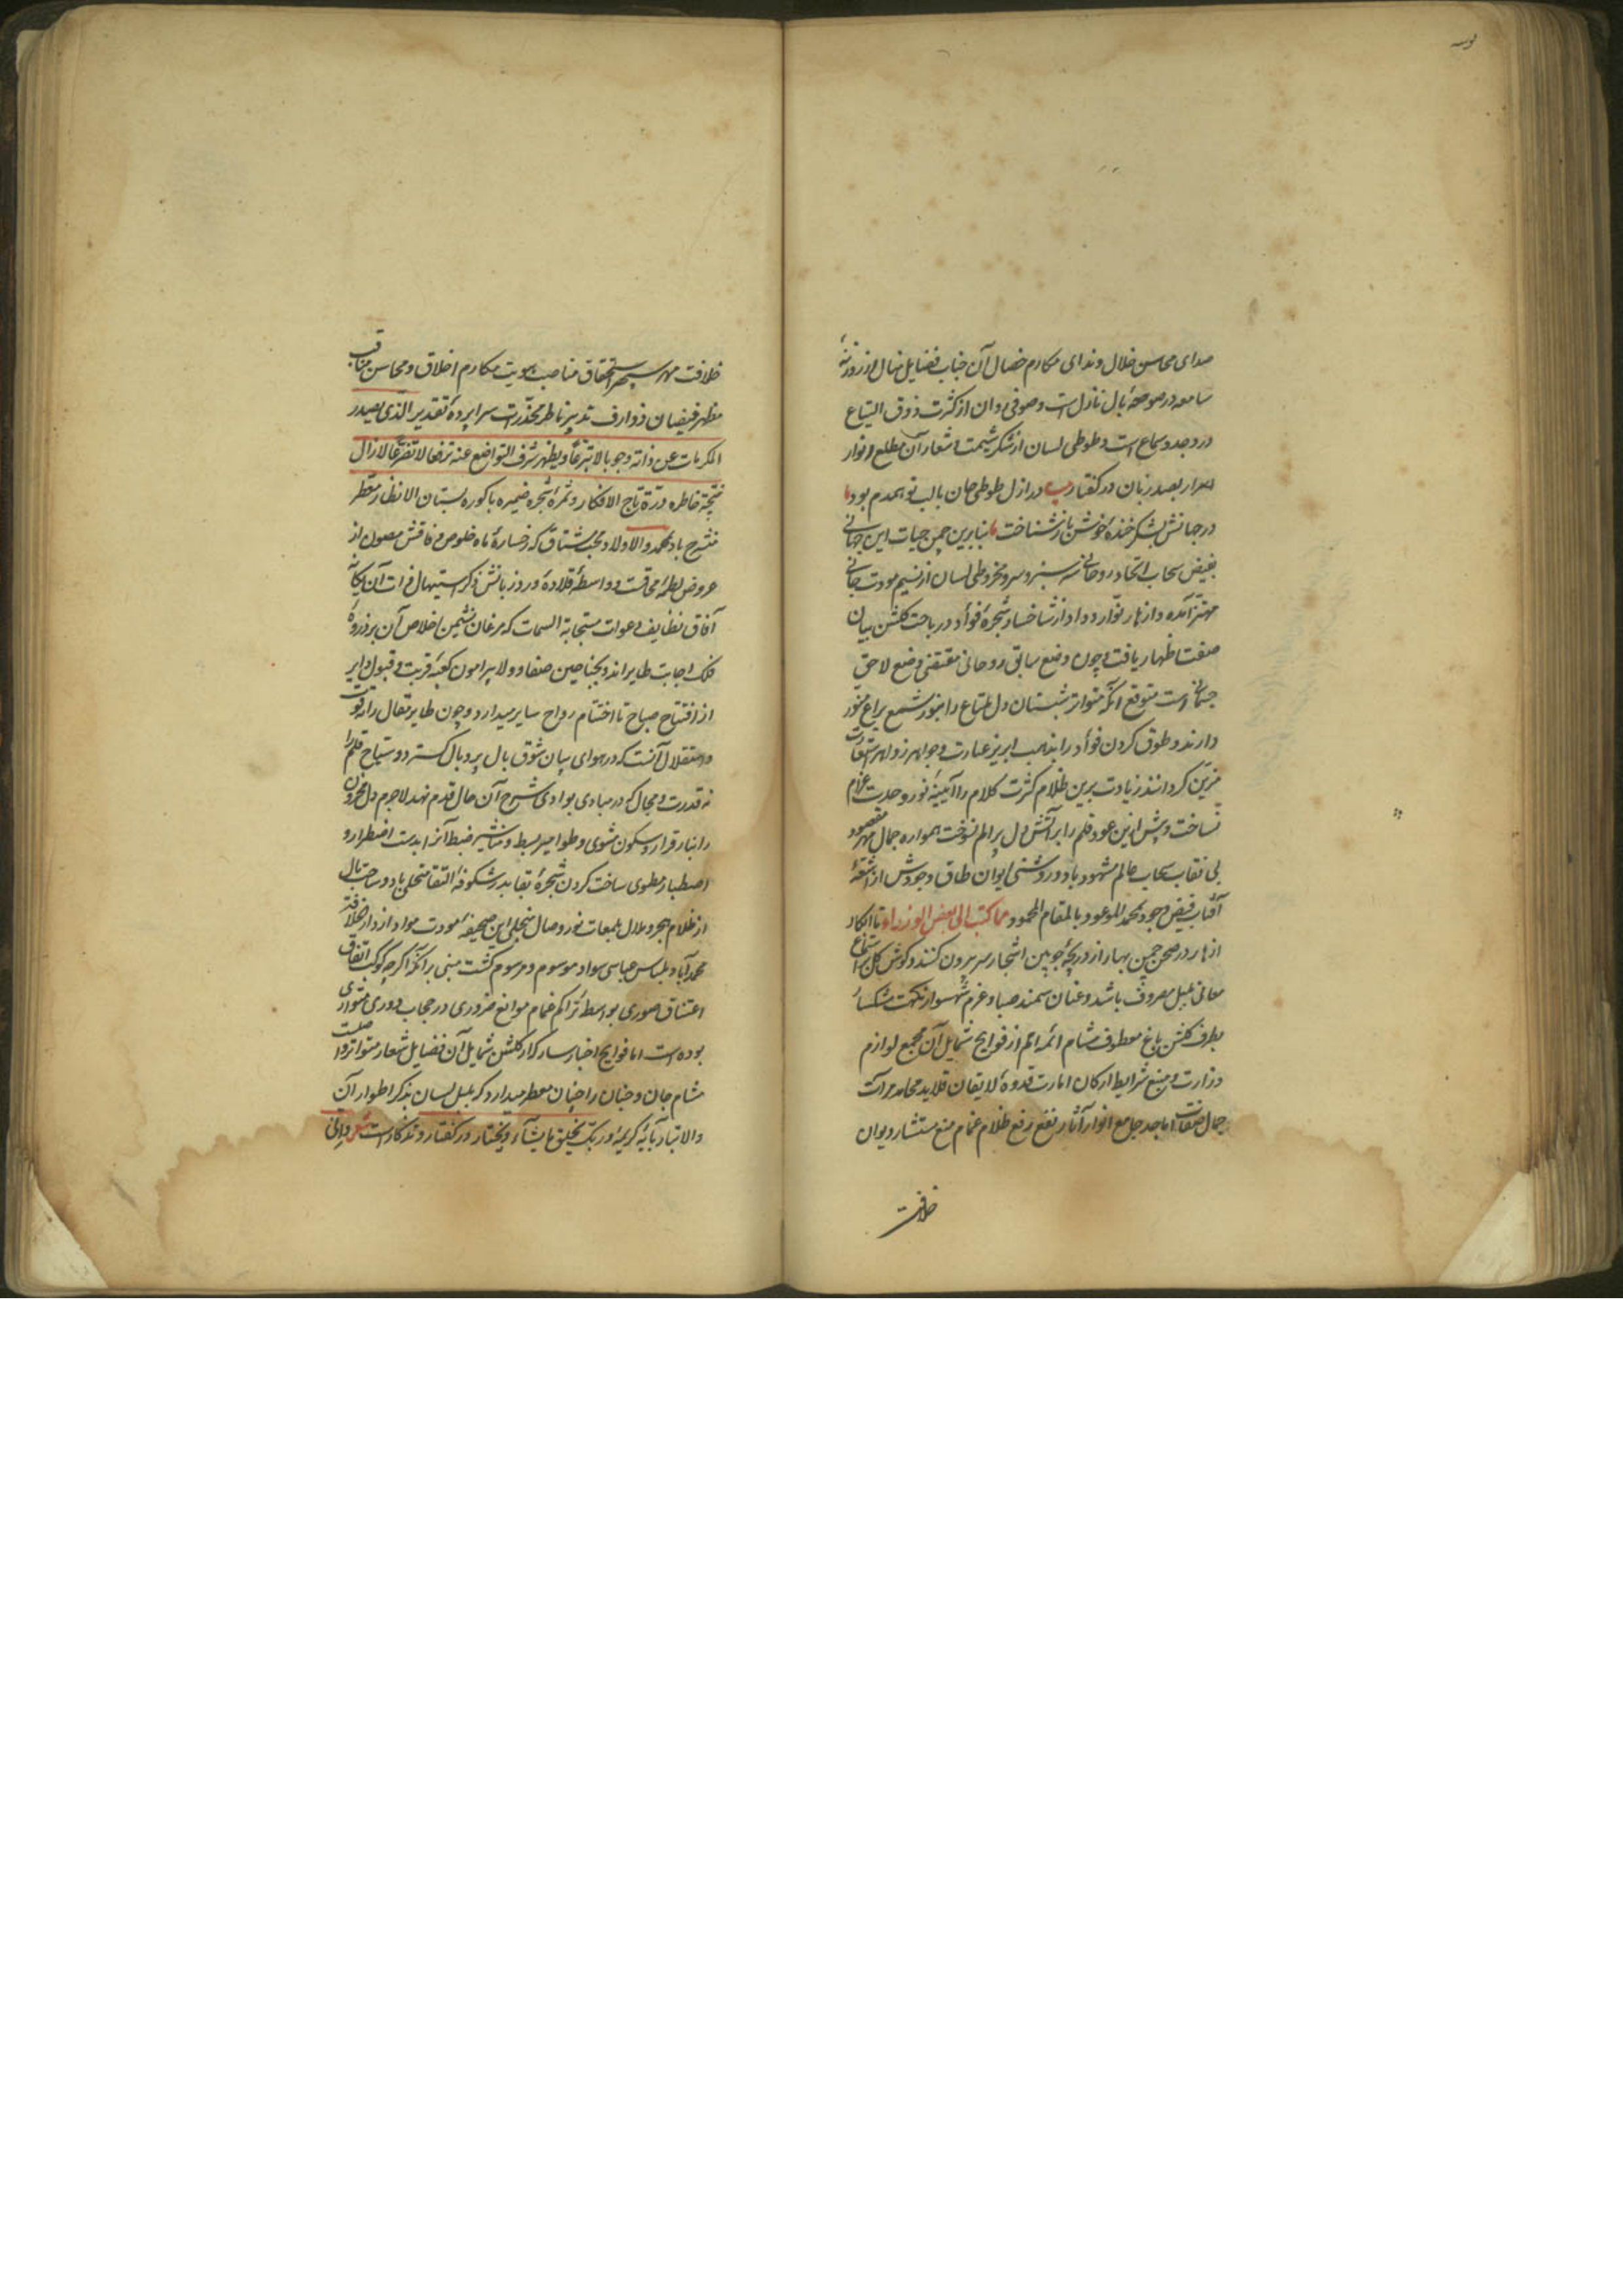 صدای محاسن خلال و ندای مکارم خصال آن جناب فضایل منال از روزنهٔ
سامعه در صومعهٔ بال نازل است و صوفی روان از کثرت ذوق التیاع
در وجد و سماع است و طوطی لسان از شکر شیمت و شعار آن مطلع انوار
اسرار بصد زبان در کفتار بیت در ازل طوطی جان با لب تو همدم بود
در جهانش بشکر خندهٔ خوشت باز شناخت بنابرین چمن حیات این جهانی
بفیض سحاب اتحاد روحانی سر سبز و سرو مخروطی لسان از نسیم مودت جانی
مهتز آمده و ازهار توارد وداد از شاخسار شجرهٔ فوأد در باحت کلشن بیان
صفت اظهار یافت و چون وضع سابق روحانی مقتضی وضع لاحق
جسمانی است متوقع انکه متواتر شبستان دل ملتاع را بنور شمع یراع منور
دارند و طوق کردن فوأد را بذهب ابریز عبارت و جواهر زواهر استعارات
مزین کردانند زیادت برین ظلام کثرت کلام را آیینهٔ نور وحدت غرام
نساخت و بیش ازین عود قلم را بر آتش دل پر الم نسوخت همواره جمال مهر مقصود
بی نقاب سحاب عالم مشهود باد و روشنی ایوان طاق وجودش از اشعهٔ
آفتاب فیض وجود بمحمد الموعود بالمقام المحمود مما کتب الی بعض الوزراء تا ابکار
ازهار در صحن چمن بهار از دریچهٔ چوبین اشجار سر برون کنند و کوش کل باستماع
معانی بلبل مصروف باشد و عنان سمند صبا و عزم شهسوار نکهت مشکسا
بطرف کلشن باغ معطوف مشام ائمه امم از فوایح شمایل آن مجمع لوازم
وزارت و منبع شرایط ارکان امارت قدوهٔ لایقان قلاید محامد مرآت
جمال صفات اماجد جامع انوار آثار نفع رفع ظلام غمام منع مستشار دیوان
خلافت
خلافت مهر سپهر استحقاق مناصب بهویت مکارم اخلاق و محاسن مناقب
مظهر فیضان ذوارف تدبیر ناظر مخدرات سراپردهٔ تقدیر الذی یصدر
المکرمات عن ذاته وجوبا لا تبرعا و یظهر شرف التواضع عنه ترفعا لا تضرعا لا زال
نتیجة خاطره درة تاج الافکار و ثمرهٔ شجره ضمیره باکوره بستان الانظار معطر
منشرح باد بمحمد و الاولاد محب مشتاق که رخسارهٔ ماه خلوص وفاقش مصون از
عروض لطمهٔ محاقست و واسطهٔ قلادهٔ ورد زبانش ذکر استیهال ذات آن یکانهٔ
آفاق نظایف دعوات مستجابة السمات که مرغان نشیمن اخلاص آن بر ذروهٔ
فلک اجابت طایر اند و بجناحین صفا و ولا پیرامون کعبهٔ قربت و قبول دایر
از افتتاح صباح تا اختتام رواح سایر میدارد و چون طایر مقال را نه قوت
و استقلال آنست که در هوای بیان شوق بال پر و بال کسترد و سیاح قلم را
نه قدرت و مجال که در مبادی بوادی شرح آن حال قدم نهد لاجرم دل محزون
را بنار قرار و سکون مشوی و طوامیر بسط و مناشیر ضبط آنرا بدست اضطرار و
اصطبار مطوی ساخت کردن شجرهٔ بقا بدر شکوفهٔ التقا متحلی باد و ساحت بال
از ظلام هجر و ملال بلمعات نور وصال منجلی این صحیفهٔ مودت مواد از دار الخلافة
محمدآباد بلباس عباسی سواد موسوم و مرسوم کشت مبنی بر آنکه اکر چه کوکب اتفاق
اعتناق صوری بواسطهٔ تراکم غمام موانع ضروری در حجاب دوری متواری
بوده است اما فوایح اخبار سار کلزار کلشن شمایل آن فضایل شعار متواترا
مشام جان و جنان را چنان معطر میدارد که بلبل لسان بذکر اطوار آن
والاتبار بآیهٔ کریمهٔ و ربک یخلق ما یشآء و یختار در کفتار و تذکار است شعر و انی